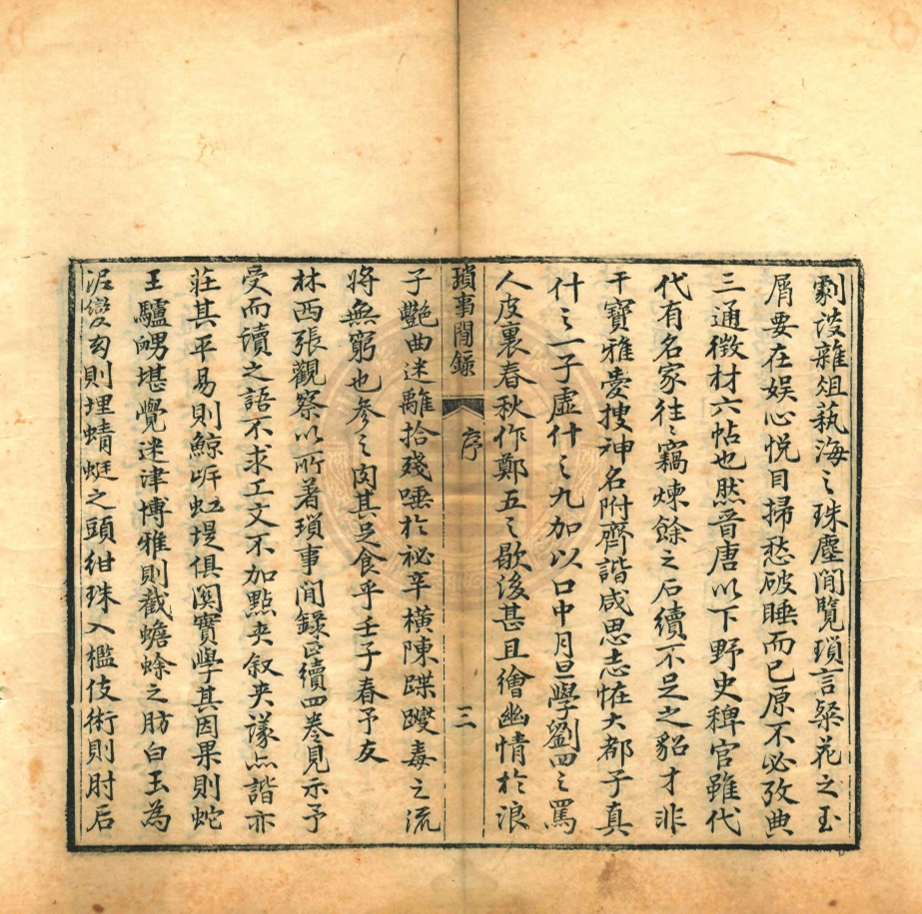 劇談雜俎執海〻珠塵閒覽瑣言粲花之玉
屑要在娱心悦目掃愁破睡而已原不必攷典
三通徵材六帖也然晉唐以下野史稗官雖代
代有名家往〻竊煉餘之石續不足之貂才非
干寶雅愛搜神名附齊諧咸思志怪大都子真
什〻一子虛什〻九加以口中月旦學劉四〻罵
人皮裏春秋作鄭五〻歇後甚且繪幽情於浪
瑣事閒錄 序 三
子艷曲迷離拾殘唾於祕辛橫陳蹀躞毒之流
將無窮也參〻肉其足食乎壬子春予友
林西張觀察以所著瑣事閒錄正續四巻見示予
受而讀之語不求工文不加點夾叙夾議亦諧亦
莊其平易則鯨呿虹堤俱闃實學其因果則蛇
王驢甥堪覺迷津博雅則截蟾蜍之肪白玉為
泥變幻則埋蜻蜓之頭紺珠入檻伎術則肘后